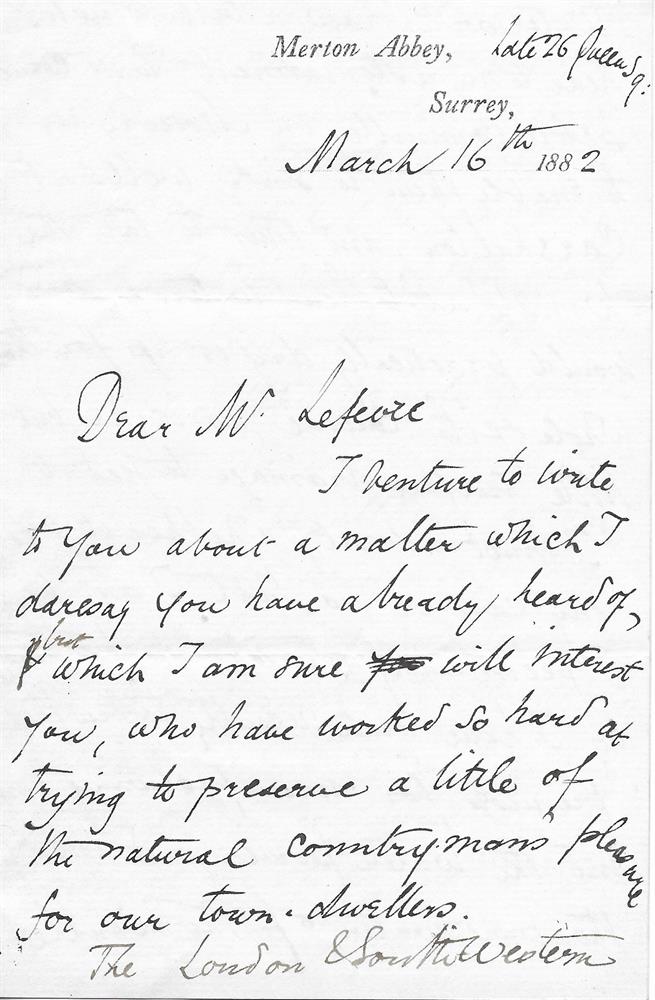 Merton Abbey, Late 26 Queen Sq:
Surrey,
March 16th 1882
Dear Mr. Lefevre
I venture to write
to you about a matter which I
daresay you have already heard of,
& which I am sure will interest
you, who have worked so hard at
trying to preserve a little of
the natural countryman's pleasure
for our town-dwellers.
The London & South Western